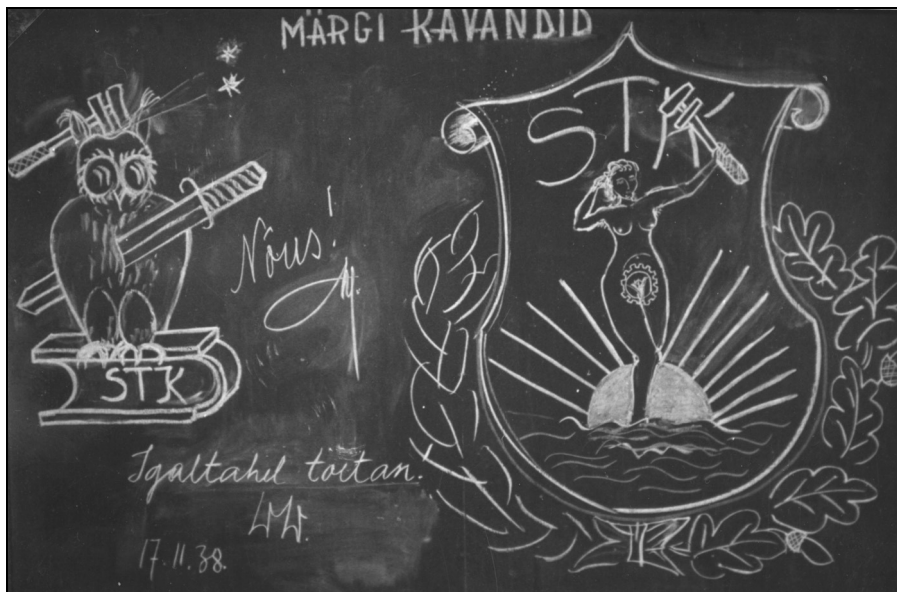 MÄRGI KAVANDID
STK
STK
Nõus!
Igaltahel toetan!
17.11.38.